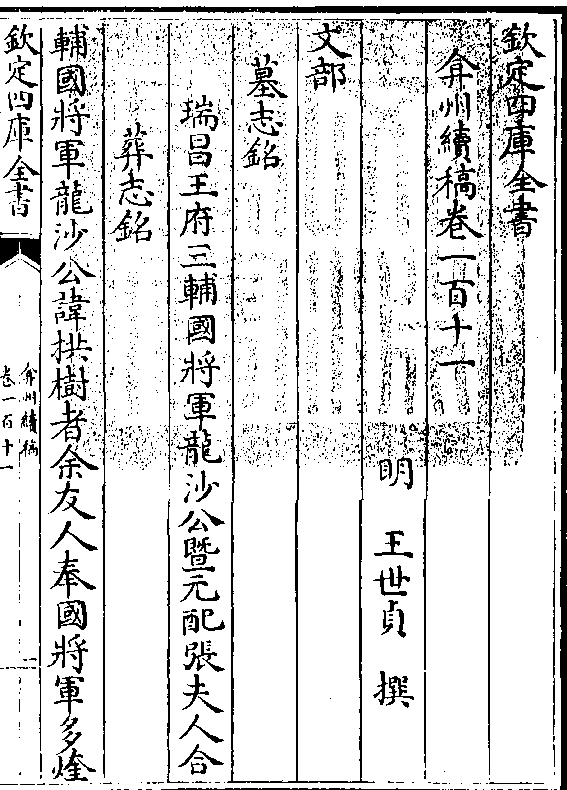 欽定四庫全書
弇州續稿卷一百十一
明 王世貞 撰
文部
墓志銘
瑞昌王府三輔國將軍龍沙公暨元配張夫人合
葬志銘
輔國將軍龍沙公諱拱樹者余友人奉國將軍多煃
欽定四庫全書
弇州續稿
卷一百十一
一